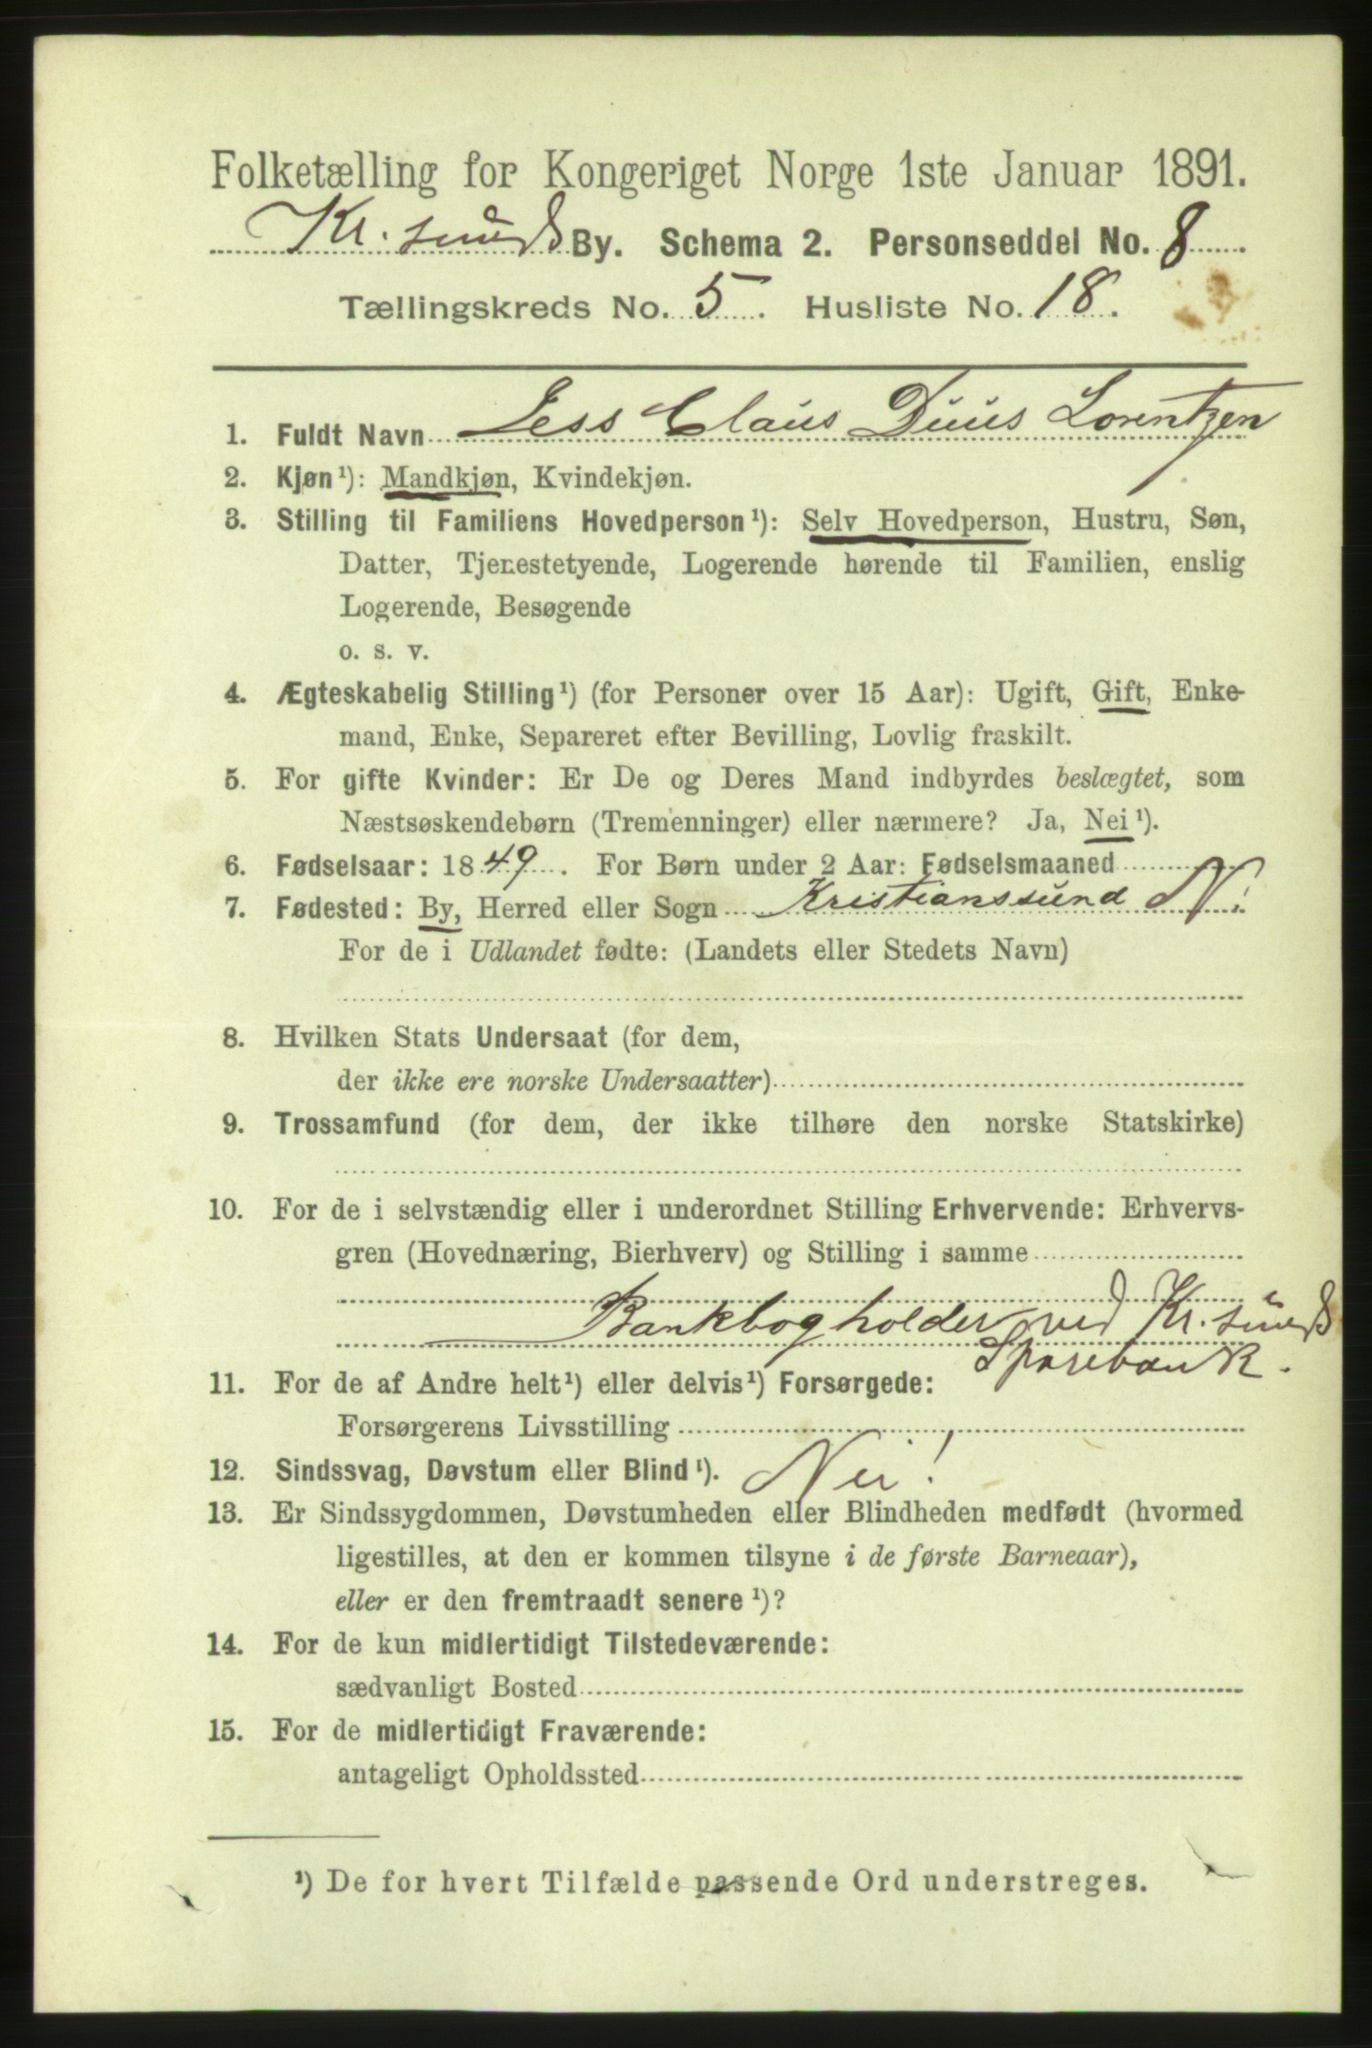 Folketælling for Kongeriget Norge 1ste Januar 1891.
Kr. sunds By. Schema 2. Personseddel No. 8
Tællingskreds No. 5. Husliste No. 18.
1. Fuldt Navn Jess Claus Duus Lorentzen
2. Kjøn¹): Mandkjøn, Kvindekjøn.
3. Stilling til Familiens Hovedperson¹): Selv Hovedperson, Hustru, Søn,
Datter, Tjenestetyende, Logerende hørende til Familien, enslig
Logerende, Besøgende
o. s. v.
4. Ægteskabelig Stilling¹) (for Personer over 15 Aar): Ugift, Gift, Enke-
mand, Enke, Separeret efter Bevilling, Lovlig fraskilt.
5. For gifte Kvinder: Er De og Deres Mand indbyrdes beslægtet, som
Næstsøskendebørn (Tremenninger) eller nærmere? Ja, Nei¹).
6. Fødselsaar: 1849. For Børn under 2 Aar: Fødselsmaaned
7. Fødested: By, Herred eller Sogn Kristianssund N.
For de i Udlandet fødte: (Landets eller Stedets Navn)
8. Hvilken Stats Undersaat (for dem,
der ikke ere norske Undersaatter)
9. Trossamfund (for dem, der ikke tilhøre den norske Statskirke)
10. For de i selvstændig eller i underordnet Stilling Erhvervende: Erhvervs-
gren (Hovednæring, Bierhverv) og Stilling i samme
Bankbogholder ved Kr. sunds
Sparebank.
11. For de af Andre helt¹) eller delvis¹) Forsørgede:
Forsørgerens Livsstilling
12. Sindssvag, Døvstum eller Blind¹). Nei!
13. Er Sindssygdommen, Døvstumheden eller Blindheden medfødt (hvormed
ligestilles, at den er kommen tilsyne i de første Barneaar),
eller er den fremtraadt senere¹)?
14. For de kun midlertidigt Tilstedeværende:
sædvanligt Bosted
15. For de midlertidigt Fraværende:
antageligt Opholdssted
¹) De for hvert Tilfælde passende Ord understreges.